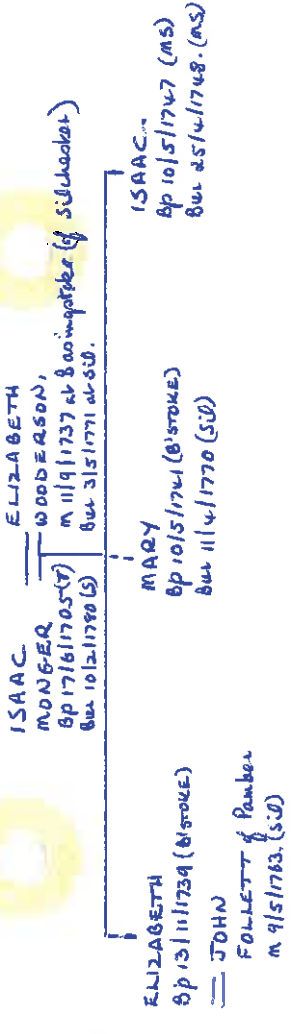 ISAAC
MONGER
Bp 17/6/1705 (T)
Bur 10/2/1780 (S)
ELIZABETH
WOODERSON,
m 11/9/1737 at Basingstoke (of Silchester)
Bur 3/5/1771 at Sil.
ELIZABETH
Bp 13/11/1739 (B'STOKE)
= JOHN
FOLLETT of Pamber
m 9/5/1763. (Sil)
MARY
Bp 10/5/1741 (B'STOKE)
Bur 11/4/1770 (Sil)
ISAAC
Bp 10/5/1747 (MS)
Bur 25/4/1748. (MS)